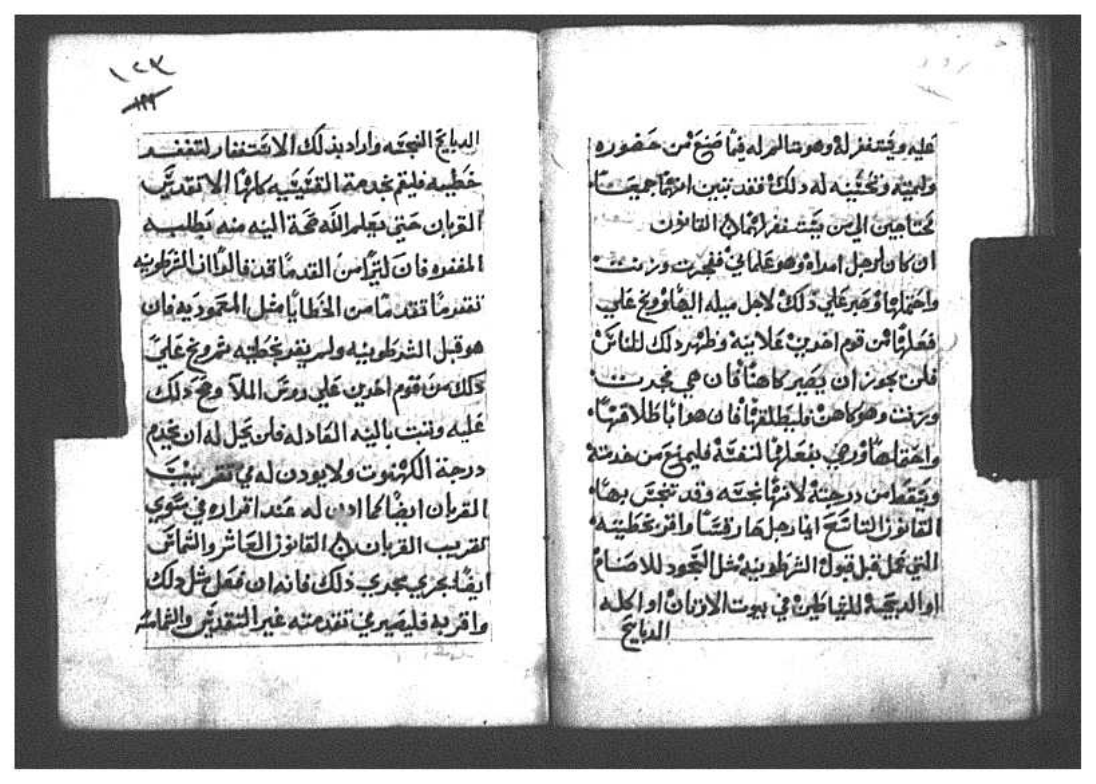 عليه ويستغفر له وهو سالم له فيما صنع من حضوره
وليمته وتحننه له دلك فقد تبين انهما جميعا
محتاجين الي من يستغفر لهما القانون
ان كان لرجل امراه وهو علماني ففجرت وزنت
واحتملها وصبر علي دلك لاجل ميله اليها ووبخ علي
فعلها من قوم اخرين علانية وظهر دلك للناس
فلن يجوز ان يصير كاهنا فان هي فجرت
وزنت وهو كاهن فليطلقها فان هو ابا طلاقها
واحتملها ورضي بفعلها لنفسه فليمنع من خدمته
ويسقط من درجته لانها نجسه وقد تنجس بها
القانون التاسع ايما رجل صار قسا واقر بخطيته
التي عمل قبل قبول الشرطونيه مثل السجود للاصنام
او الدبيحة للشياطين في بيوت الاوثان او اكله
الدبايح
١٢٣
١٩٩
الدبايح النجسه واراد بدلك الاستغفار لتغفر
خطيته فليقم بخدمة القسيسيه كلها الا تقديس
القربان حتي يعلم الله صحة النيه منه بطلبه
المغفره فان كثيرا من القدما قد قالوا ان الشرطونيه
تغفر ما تقدمها من الخطايا مثل المعموديه فان
هو قبل الشرطونيه ولم يقر بخطيته ثم وبخ علي
دلك من قوم اخرين علي روس الملا وصح دلك
عليه وتبت بالنيه العادله فلن يحل له ان يخدم
درجة الكهنوت ولا يودن له في تقريب
القربان ايضا كما ادن له عند اقراره في سوي
تقريب القربان القانون العاشر والشماس
ايضا يجري مجري دلك فانه ان فعل مثل دلك
واقر به فليصير في تقدمته غير التقديس والشماسه